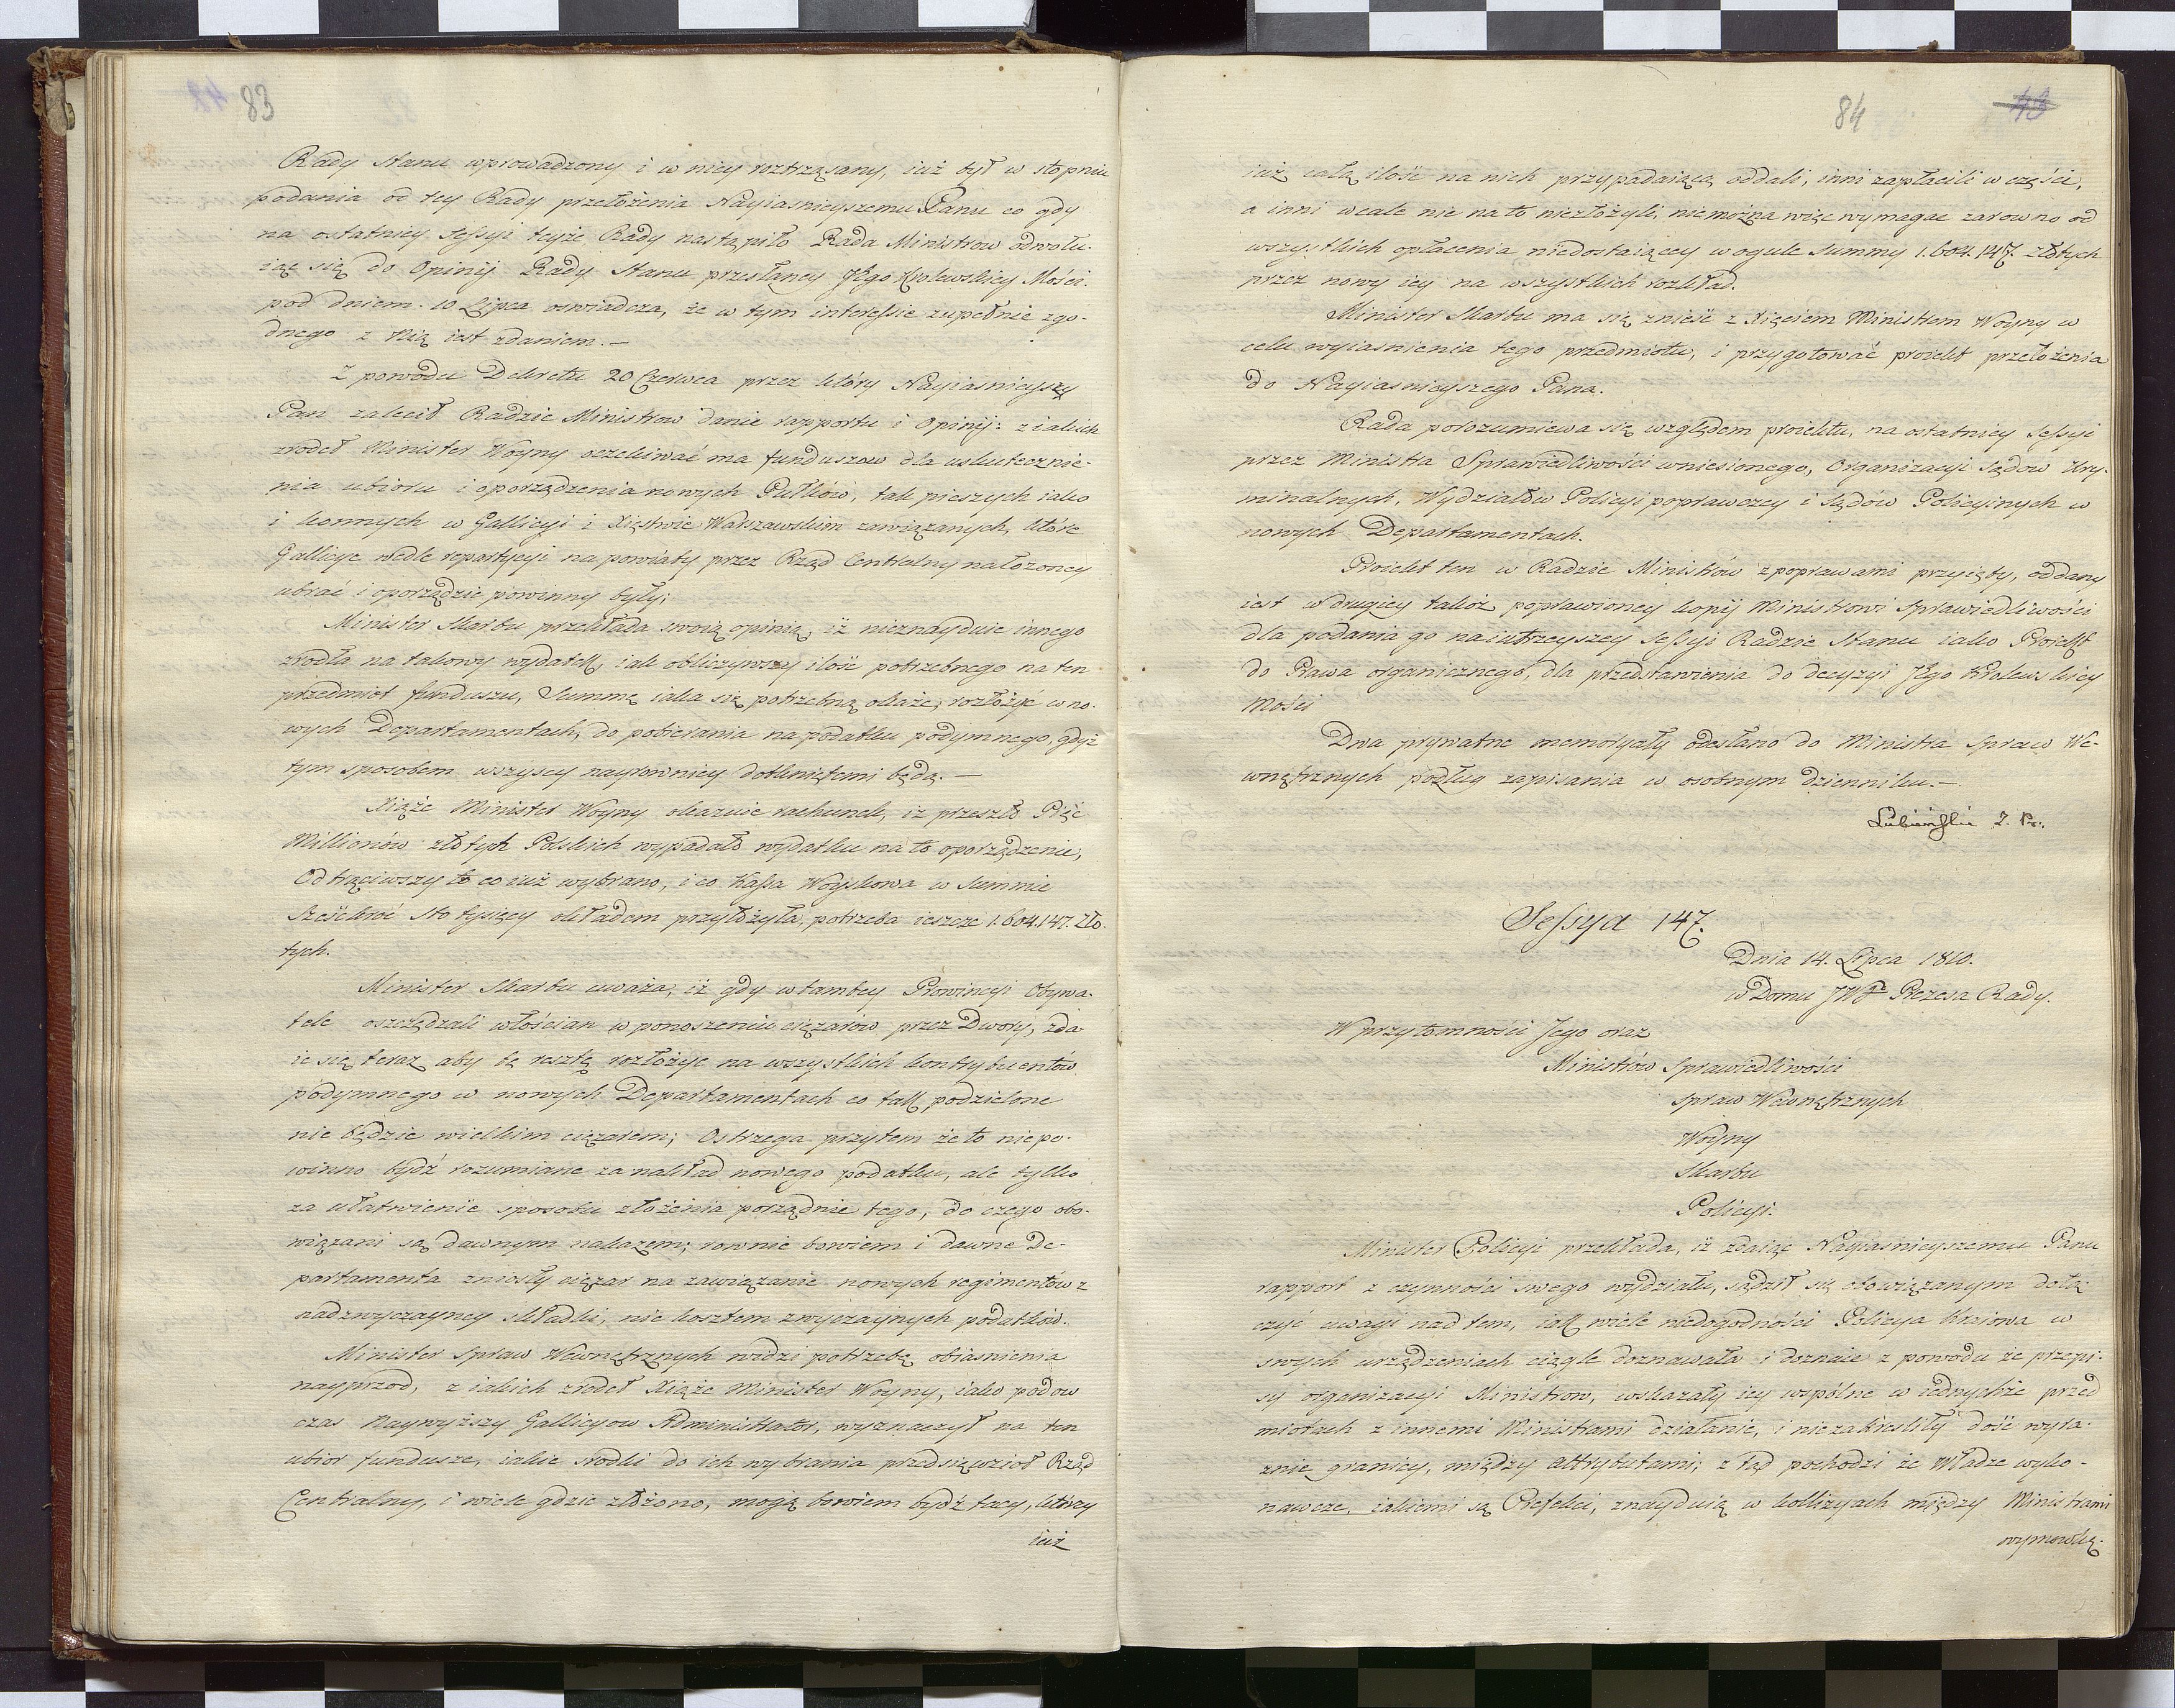 83
Rady Stanu wprowadzony i w niey roztrząsany, iuż był w stopniu
podania od tey Rady przełożenia Nayiasnieyszemu Panu co gdy
na ostatniey Sessyi teyże Rady nastąpiło Rada Ministrow odwołu-
iąc się do Opinij Rady Stanu przesłaney Jego Krolewskiey Mości
pod dniem 10 Lipca oswiadcza, że w tym interessie zupełnie zgo-
dnego z Nią iest zdaniem.—
Z powodu Dekretu 20 Czerwca przez który Nayiasnieyszy
Pan zalecił Radzie Ministrow danie rapportu i Opinij: z iakich
zrodeł Minister Woyny oczekiwać ma funduszow dla uskutecznie-
nia ubioru i oporządzenia nowych Pułków, tak pieszych iako
i konnych w Gallicyi i Xięstwie Warszawskim zawiązanych, które
Gallicye wedle repartycyi na powiaty przez Rząd Centralny nałożoney
ubrać i oporządzić powinny były;
Minister Skarbu przekłada swoią opinią, iż nieznayduie innego
zrodła na takowy wydatek, iak obliczywszy ilość potrzebnego na ten
przedmiot funduszu, Summę iaka się potrzebną okaże, rozłożyć w no-
wych Departamentach, do pobierania na podatku podymnego, gdyż
tym sposobem wszyscy nayrowniey dotkniętemi będą.—
Xiąże Minister Woyny okazuie rachunek, iż przeszło Pięć
Millionów złotych Polskich wypadało wydatku na to oporządzenie,
Odtrąciwszy to co iuż wybrano, i co Kassa Woyskowa w Summie
Sześćkroć sto tysięcy okładem przyłożyła, potrzeba ieszcze 1.604.147. Zło-
tych.
Minister Skarbu uważa, iż gdy w tamtey Prowincyi Obywa-
tele oszczędzali włościan w ponoszeniu ciężarów przez Dwory, zda
ie się teraz aby tę resztę rozłożyć na wszystkich kontrybuentów
podymnego w nowych Departamentach co tak podzielone
nie będzie wielkim ciężarem; Ostrzega przytem że to niepo-
winno bydź rozumiane za nakład nowego podatku, ale tylko
za ułatwienie sposobu złożenia porządnie tego, do czego obo-
wiązani są dawnym nakazem; rownie bowiem i dawne De-
partamenta zniosły ciężar na zawiązanie nowych regimentów z
nadzwyczayney składki, nie kosztem zwyczaynych podatków.
Minister Spraw Wewnętrznych widzi potrzebę obiasnienia
nayprzod, z iakich zrodeł Xiąże Minister Woyny, iako podow
czas Naywyższy Gallicyow Administrator, wyznaczył na ten
ubior fundusze, iakie srodki do ich wybrania przedsięwziął Rząd
Centralny, i wiele gdzie złożono, mogą bowiem bydź tacy, którzy
iuż
84
43
iuż całą ilość na nich przypadaiącą oddali, inni zapłacili w części,
a inni wcale nie na to niezłożyli, niemożna więc wymagać zarowno od
wszystkich opłacenia niedostaiącey w ogule Summy 1.604.147. złotych
przez nowy iey na wszystkich rozkład.
Minister Skarbu ma się znieść z Xięciem Ministrem Woyny w
celu wyiasnienia tego przedmiotu, i przygotować proiekt przełożenia
do Nayiasnieyszego Pana.
Rada porozumiewa się względem proiektu, na ostatniey Sessyi
przez Ministra Sprawiedliwości wniesionego, Organizacyi Sądow Kry-
minalnych, Wydziałów Policyi poprawczey i Sądów Policyinych w
nowych Departamentach.
Proiekt ten w Radzie Ministrów z poprawami przyięty, oddany
iest w drugiey takoż poprawioney kopij Ministrowi Sprawiedliwości
dla podania go na iutrzeyszey Sessyi Radzie Stanu iako Proiekt
do Prawa organicznego, dla przedstawienia do decyzyi Jego Krolewskiey
Mości
Dwa prywatne memoryały odesłano do Ministra Spraw We-
wnętrznych podług zapisania w osobnym dzienniku.—
Sessya 147.
Dnia 14. Lipca 1810.
w Domu JWgo Prezesa Rady.
W przytomności Jego oraz
Ministrów Sprawiedliwości
Spraw Wewnętrznych
Woyny
Skarbu
Policyi.
Minister Policyi przekłada, iż zdaiąc Nayiasnieyszemu Panu
rapport z czynności swego wydziału, sądził się obowiązanym dołą-
czyć uwagi nad tem, iak wiele niedogodności Policya Kraiowa w
swych urządzeniach ciągle doznawała i doznaie z powodu że przepi-
sy organizacyi Ministrow, wskazały iey wspólne w iednychże przed
miotach z innemi Ministrami działanie, i niezakreśliły dość wyra-
znie granicy, między attrybutami; z tąd pochodzi że Władze wyko-
nawcze, iakiemi są Prefekci, znayduią w kollizyach między Ministrami
wymowkę.